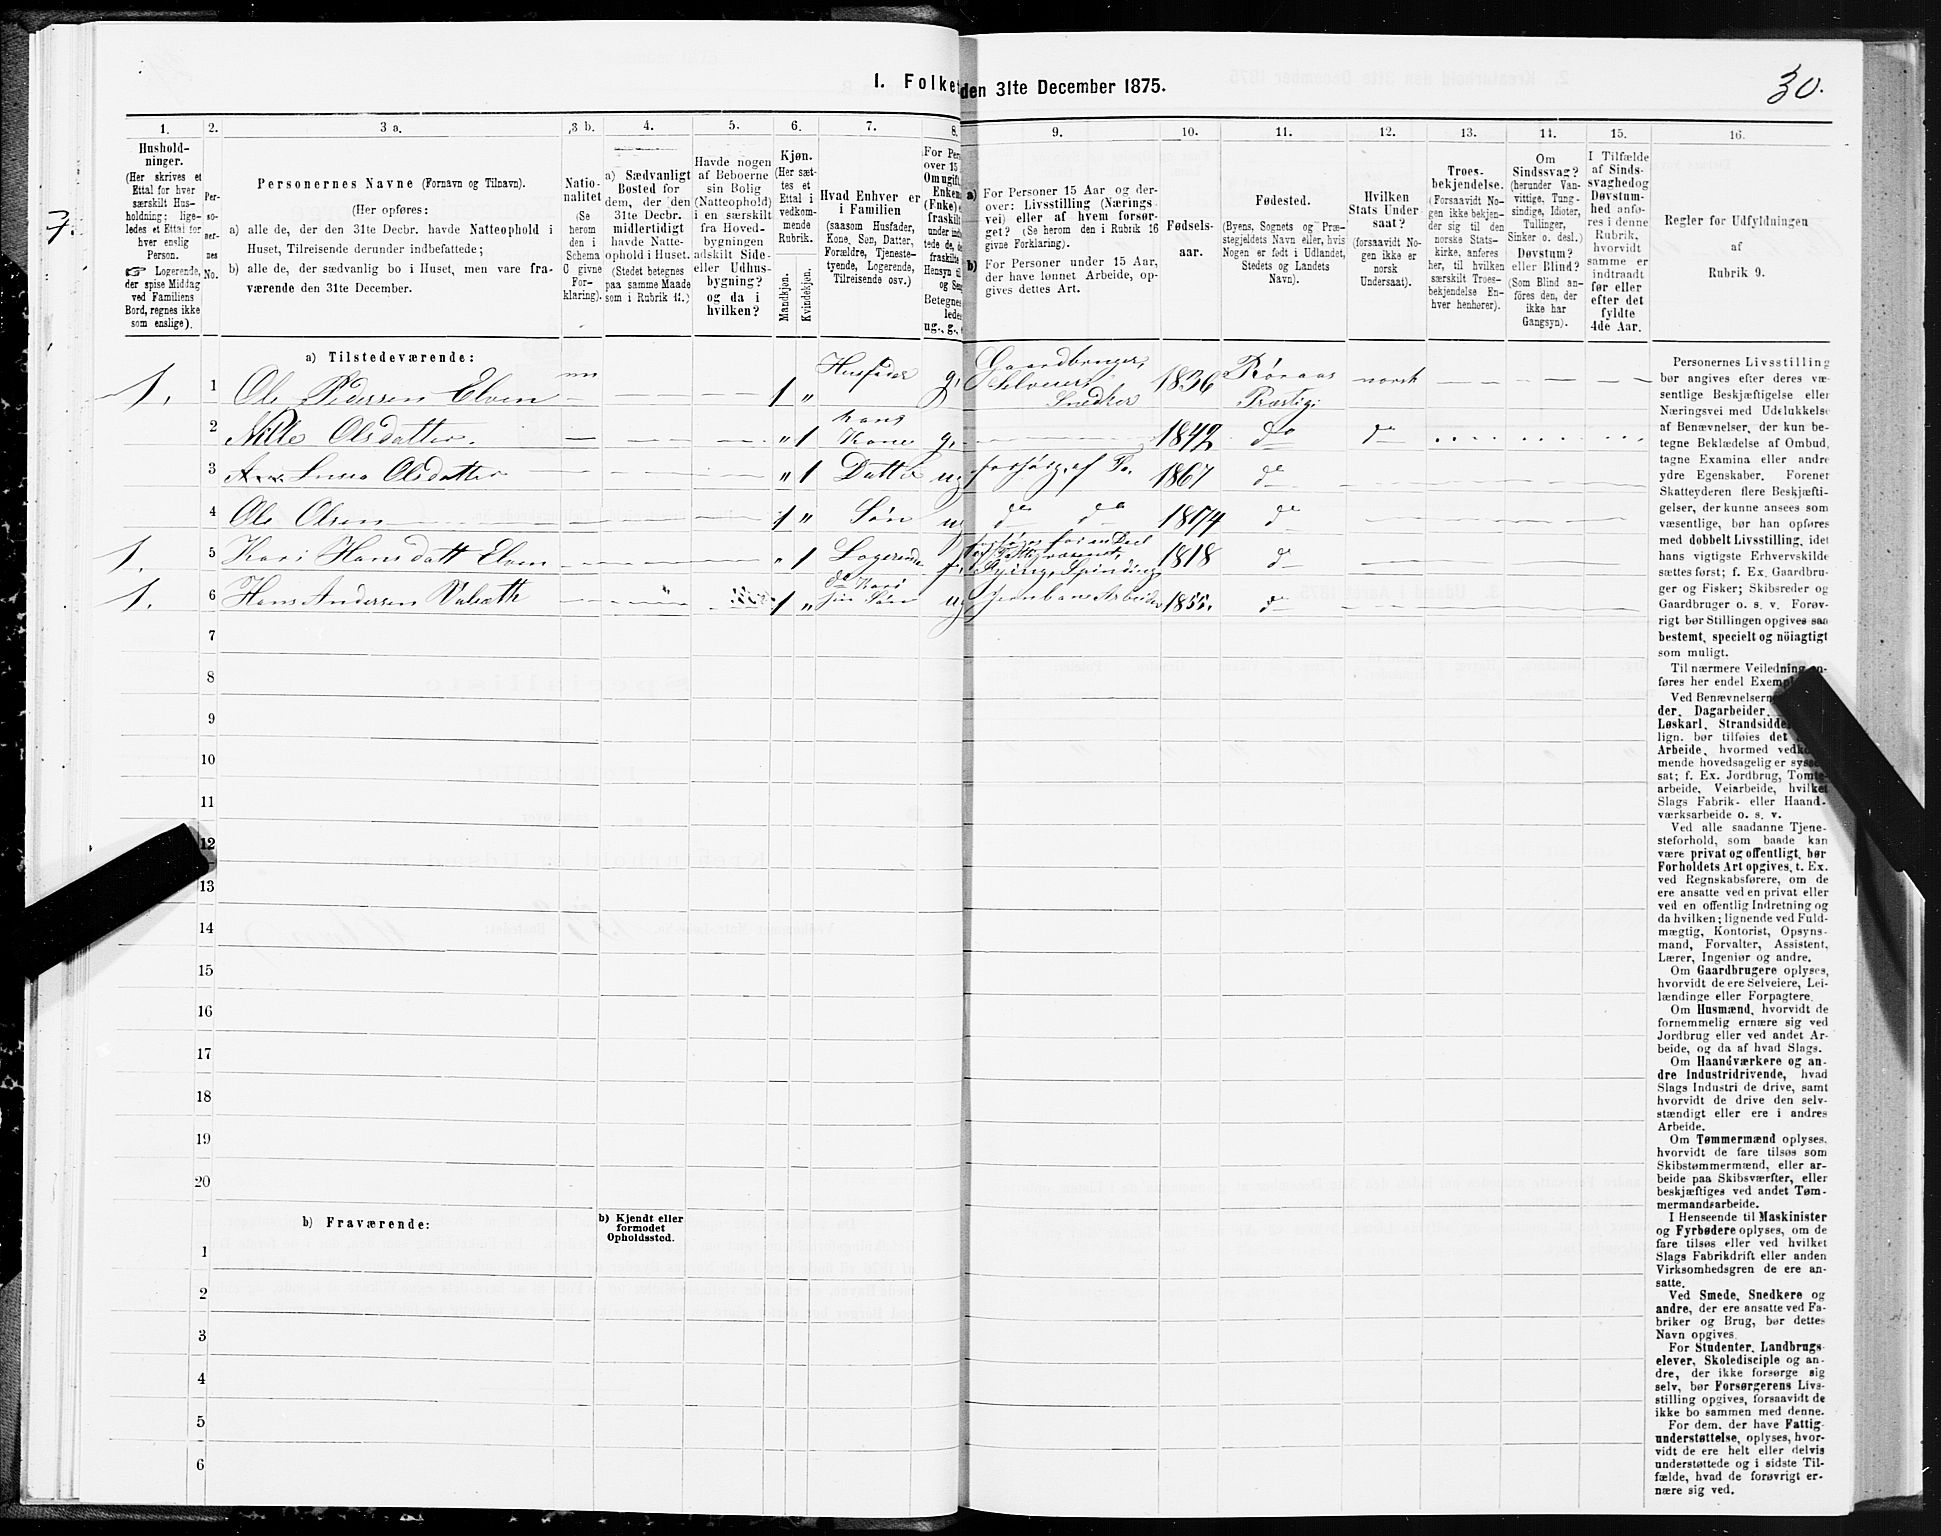 I. Folket
den 31te December 1875.
30.
7.
1. 2. 3 a. 3 b. 4. 5. 6. 7. 8. 9. 10. 11. 12. 13. 14. 15. 16.
Hushold-
ninger.
(Her skrives et
Ettal for hver
særskilt Hus-
holdning; lige-
ledes et Ettal for
hver enslig
Person.
Logerende,
der spise Middag
ved Familiens
Bord, regnes ikke
som enslige).
Per-
so-
ner-
nes
No.
Personernes Navne (Fornavn og Tilnavn).
(Her opføres:
a) alle de, der den 31te Decbr. havde Natteophold i
Huset, Tilreisende derunder indbefattede;
b) alle de, der sædvanlig bo i Huset, men vare fra-
værende den 31te December.
Natio-
nalitet
(Se
herom
den i
Schema
C givne
For-
klaring).
a) Sædvanligt
Bosted for
dem, der den
31te Decbr.
midlertidigt
havde Natte-
ophold i Huset.
(Stedet betegnes
paa samme Maade
som i Rubrik 11.)
Havde nogen
af Beboerne
sin Bolig
(Natteophold)
i en særskilt
fra Hoved-
bygningen
adskilt Side-
eller Udhus-
bygning?
og da i
hvilken?
Kjøn.
(Her sæt-
tes et
Ettal i
vedkom-
mende
Rubrik.
Mandkjøn.
Kvindekjøn.
Hvad Enhver er
i Familien
(saasom Husfader,
Kone, Søn, Datter,
Forældre, Tjeneste-
tyende, Logerende,
Tilreisende osv.)
For Per
over 15
Om ugift,
Enkem
(Enke) e
fraskilt
under ind
tede de, d
fraskilte
Hensyn til
og Sen
Betegnes
ledes
ug., g., e
a) For Personer 15 Aar og der-
over: Livsstilling (Nærings-
vei) eller af hvem forsør-
get? (Se herom den i Rubrik 16
givne Forklaring).
b) For Personer under 15 Aar,
der have lønnet Arbeide, op-
gives dettes Art.
Fødsels-
aar.
Fødested.
(Byens, Sognets og Præ-
stegjeldets Navn eller, hvis
Nogen er født i Udlandet,
Stedets og Landets
Navn).
Hvilken
Stats Under
saat?
(forsaavidt No-
gen ikke er
norsk
Undersaat).
Troes-
bekjendelse.
(Forsaavidt No-
gen ikke bekjen-
der sig til den
norske Stats-
kirke, anføres
her, til hvilken
særskilt Troes-
bekjendelse En-
hver henhører).
Om
Sindssvag?
(herunder Van-
vittige, Tung-
sindige, Idioter,
Tullinger,
Sinker o. desl.)
Døvstum?
eller Blind?
(Som Blind an-
føres den, der
ikke har
Gangsyn).
I Tilfælde
af Sinds-
svaghedog
Døvstum-
hed anfø-
res i denne
Rubrik,
hvorvidt
samme er
indtraadt
før eller
efter det
fyldte
4de Aar.
Regler for Udfyldningen
af
Rubrik 9.
a) Tilstedeværende:
1. 1 Ole Pedersen Elven 1 " Husfader g. Gaardbruger, Selveier, Snedker 1836 Røraas Præstegj. norsk
2 Nille Olsdatter. " 1 hans Kone g. 1842 do do
3 Olsdatter " 1 Datter ug forsørg. af Fa. 1867 do
4 Ole Olsen 1 " Søn ug do do 1874 do
1. 5 Kari Hansdatt Elven " 1 Logerende 1818 do
1. 6 Hans Andersen 1 " Søn ug Jernbanearbeider 1855. do
7
8
9
10
11
12
13
14
15
16
17
18
19
20
b) Fraværende:
b) Kjendt eller
formodet
Opholdssted.
1
2
3
4
5
6
Personernes Livsstilling
bør angives efter deres væ-
sentlige Beskjæftigelse eller
Næringsvei med Udelukkelse
af Benævnelser, der kun be-
tegne Beklædelse af Ombud,
tagne Examina eller andre
ydre Egenskaber. Forener
Skatteyderen flere Beskjæfti-
gelser, der kunne ansees som
væsentlige, bør han opføres
med dobbelt Livsstilling, idet
hans vigtigste Erhvervskilde
sættes først; f. Ex. Gaardbru-
ger og Fisker; Skibsreder og
Gaardbruger o. s. v. Forøv-
rigt bør Stillingen opgives saa
bestemt, specielt og nöiagtigt
som muligt.
Til nærmere Veiledning an-
føres her endel Exemp
Ved Benævnelsern
der, Dagarbeider,
Løskarl, Strandsidde
lign. bør tilføies det
Arbeide, hvormed vedko
mende hovedsagelig er syssel
sat; f. Ex. Jordbrug, Tomte-
arbeide, Veiarbeide, hvilket
Slags Fabrik- eller Haand-
værksarbeide o. s. v.
Ved alle saadanne Tjene-
steforhold, som baade kan
være privat og offentligt, bør
Forholdets Art opgives, t. Ex.
ved Regnskabsførere, om de
ere ansatte ved en privat eller
ved en offentlig Indretning og
da hvilken; lignende ved Fuld-
mægtig, Kontorist, Opsyns-
mand, Forvalter, Assistent,
Lærer, Ingeniør og andre.
Om Gaardbrugere oplyses,
hvorvidt de ere Selveiere, Lei-
lændinge eller Forpagtere.
Om Husmænd, hvorvidt de
fornemmelig ernære sig ved
Jordbrug eller ved andet Ar-
beide, og da af hvad Slags.
Om Haandværkere og an-
dre Industridrivende, hvad
Slags Industri de drive, samt
hvorvidt de drive den selv-
stændigt eller ere i andres
Arbeide.
Om Tømmermænd oplyses,
hvorvidt de fare tilsøs som
Skibstømmermænd, eller ar-
beide paa Skibsværfter, eller
beskjæftiges ved andet Tøm-
mermandsarbeide.
I Henseende til Maskinister
og Fyrbødere oplyses, om de
fare tilsøs eller ved hvilket
Slags Fabrikdrift eller anden
Virksomhedsgren de ere an-
satte.
Ved Smede, Snedkere og
andre, der ere ansatte ved Fa-
briker og Brug, bør dettes
Navn opgives.
For Studenter, Landbrugs-
elever, Skoledisciple og an-
dre, der ikke forsørge sig
selv, bør Forsørgerens Livs-
stilling opgives, forsaavidt de
ikke bo sammen med denne.
For dem, der have Fattig-
understøttelse, oplyses, hvor-
vidt de ere helt eller delvis
understøttede og i sidste Til-
fælde, hvad de forøvrigt er-
nære sig ved.